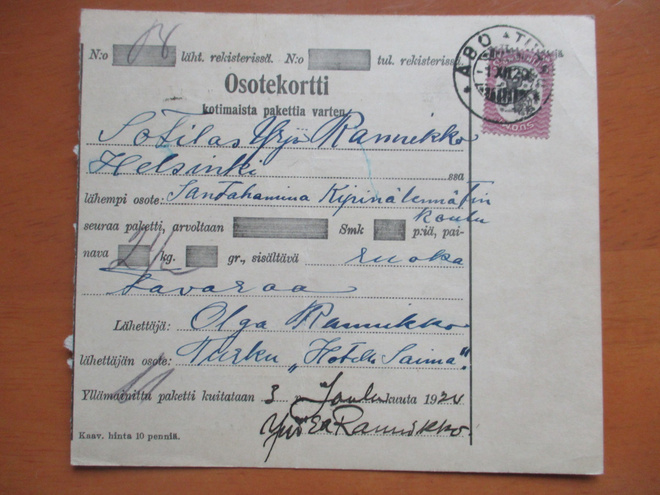 N:o läht. rekisterissä. N:o tul. rekisterissä.
Osotekortti
kotimaista pakettia varten
Sotilas Yrjö Rannikko
Helsinki ssa
lähempi osote: Santahamina Kipinälennätin
koulu
seuraa paketti, arvoltaan Smk p:iä, pai-
nava kg. gr., sisältävä ruoka
tavaraa
Lähettäjä: Olga Rannikko
lähettäjän osote: Turku „Hotelli Saima".
Yllämainittu paketti kuitataan 3 Joulukuuta 192
Rannikko.
Kaav. hinta 10 penniä.
ÅBO